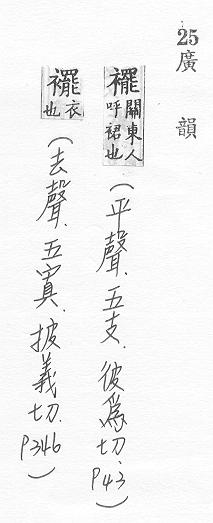 25 廣韻
襬關東人呼裙也(平聲.五支.彼爲切.P43)
襬衣也(去聲.五寘.披義切.P346)